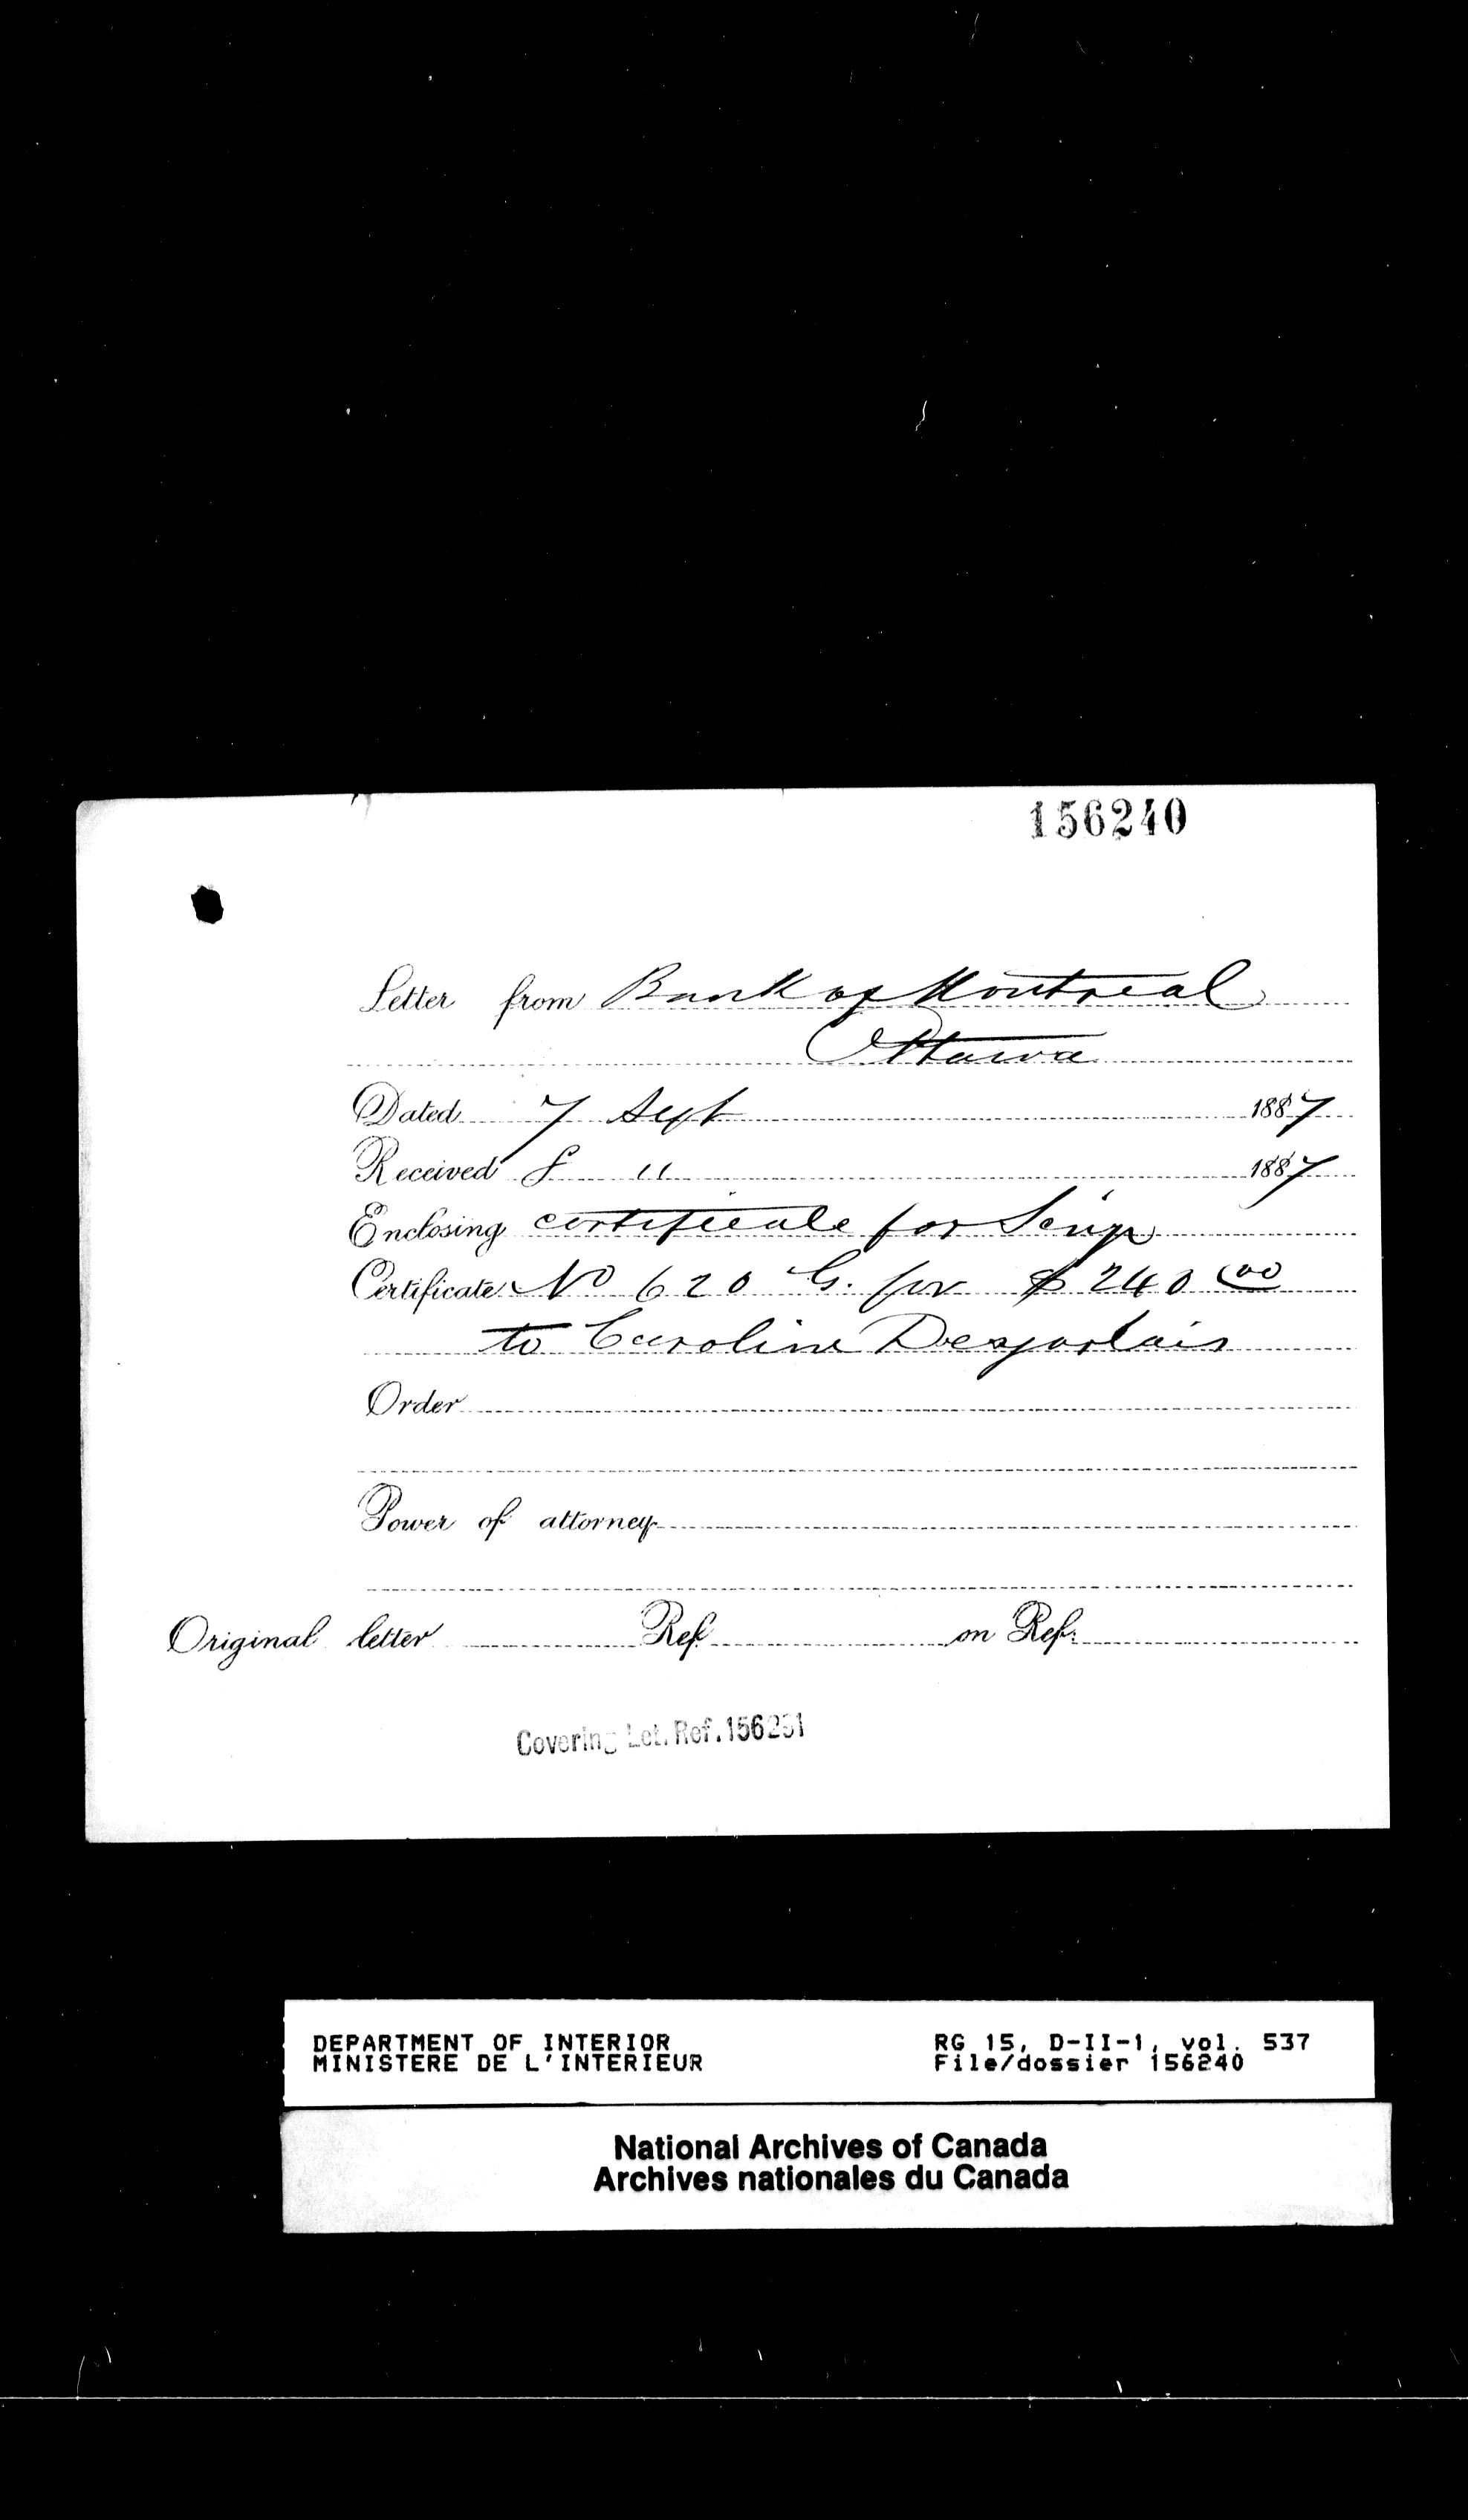 156240
Letter from Bank of Montreal
Ottawa
Dated 7 Sept 1887
Received 8 " 1887
Enclosing certificate for Scrip
Certificate No 620 G. for $240 00
to Caroline Desjarlais
Order
Power of attorney
Original letter Ref. on Ref.
Covering Let. Ref. 156231
DEPARTMENT OF INTERIOR RG 15, D-II-1, vol. 537
MINISTERE DE L'INTERIEUR File/dossier 156240
National Archives of Canada
Archives nationales du Canada